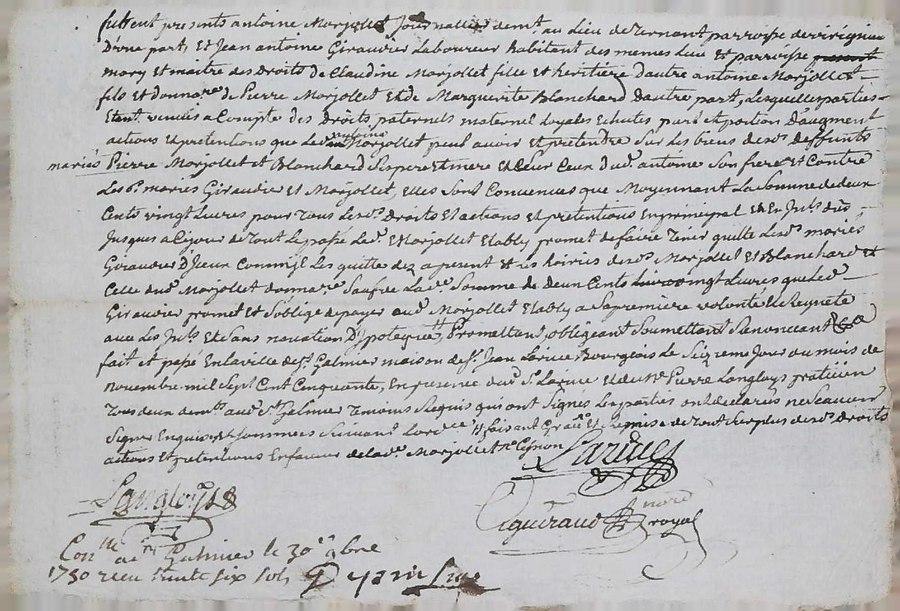 furent presents antoine Morjollet Journallier demt. au Lieu de Ternant parroisse de virigneu
D'une part, Et Jean antoine Giraudier Laboureur habitant des memes Lieu Et parroisse
mary et maitre des Droits de Claudine Morjollet fille et heritiere dautre antoine Morjollet
fils et donnare. de Pierre Morjollet Et de Marguerite Blanchard dautre part, Lesquelles parties
Etant venües a Compte des Droits paternels maternel Loyales Echutes part Et portion daugment
actions Et pretentions que Led. antoine Morjollet peut avoir et pretendre Sur Les biens desd. deffunts
mariés Pierre Morjollet et Blanchard Ses pere et mere et Sur Ceux dud. antoine Son frere et Contre
Les d. mariés Giraudier et Morjollet, Elles Sont Convenues que Moyennant La Somme de deux
Cents vingt Livres pour Tous Lesd. droits Et actions et pretentions En principal et En
Jusques a Ce jour de Tout Le passé Led. Morjollet Etably promet de faire Tenir quitte Lesd. mariés
Giraudier Les quitte dez a present et Les hoiries desd. Morjollet et Blanchard et
Celle dud. Morjollet donnare. Sauf de Lad. Somme de deux Cents vingt Livres que Led.
Giraudier promet et S'oblige de payer aud. Morjollet Etably a Sa premiere volonté Et Requete
avec Les Et Sans novation D'ypoteque, Promettant, obligeant Soumettant Renonceant
fait et passé En La ville de St. Galmier maison de Sr. Jean Larive Bourgeois Le Seizieme Jour du mois de
novembre mil Sept Cent Cinquante, En presence dud. Sr. Larive et de Me. Pierre Langloys praticien
Tous deux demts. aud. St. Galmier Temoins Requis qui ont Signés Les parties ont declarés ne Scavoir
Signer Enquis et Sommées Suivant Lord.ce faisant Et Remise de Tout Surplus desd. Droits
actions Et pretentions En faveur de Lad. Morjollet
Larive
Langloys
royal
Con.lle a St. Galmier le 30e. 9bre
1750 recu trente six sols